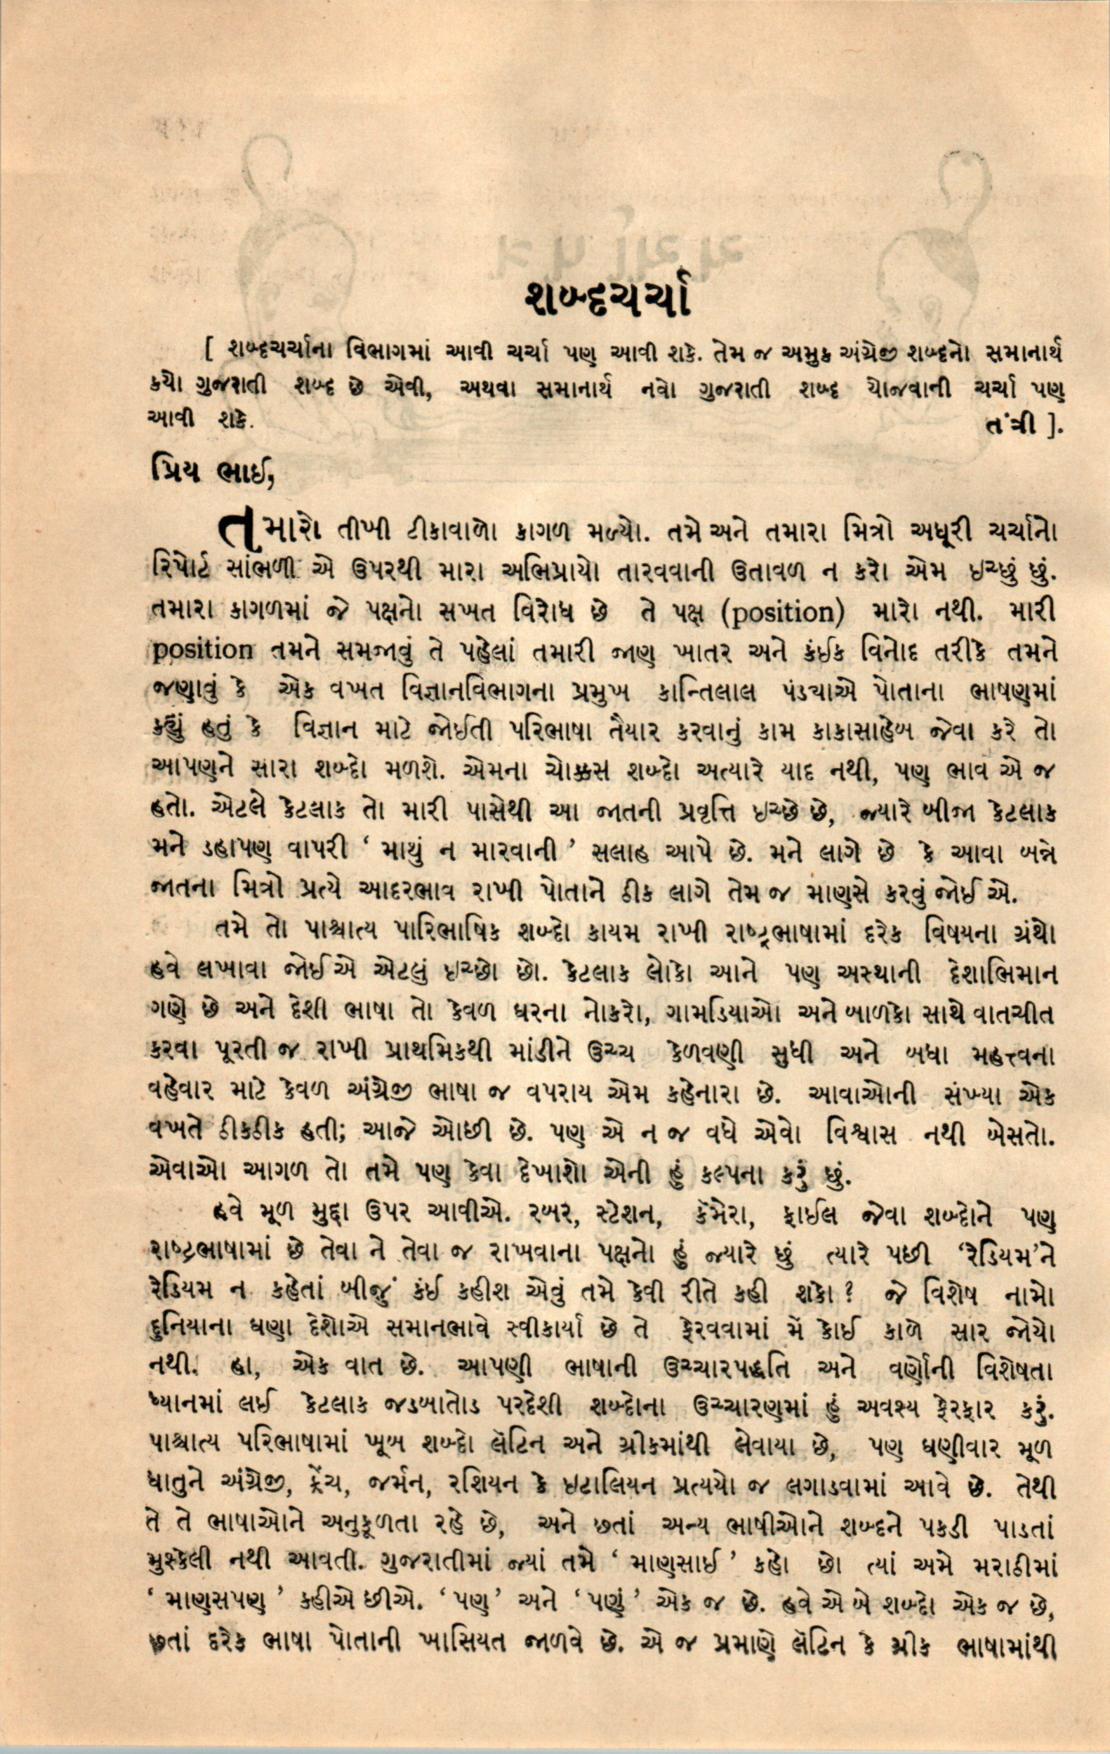 શબ્દચર્ચા
[ શબ્દચર્ચાના વિભાગમાં આવી ચર્ચા પણ આવી શકે. તેમ જ અમુક અંગ્રેજી શબ્દનો સમાનાર્થ
કયો ગુજરાતી શબ્દ છે એવી, અથવા સમાનાર્થ નવો ગુજરાતી શબ્દ યોજવાની ચર્ચા પણ
આવી શકે. તંત્રી ].
પ્રિય ભાઈ,
તમારો તીખી ટીકાવાળો કાગળ મળ્યો. તમે અને તમારા મિત્રો અધૂરી ચર્ચાનો
રિપોર્ટ સાંભળી એ ઉપરથી મારા અભિપ્રાયો તારવવાની ઉતાવળ ન કરો એમ ઇચ્છું છું.
તમારા કાગળમાં જે પક્ષનો સખત વિરોધ છે તે પક્ષ (position) મારો નથી. મારી
position તમને સમજાવું તે પહેલાં તમારી જાણ ખાતર અને કંઈક વિનોદ તરીકે તમને
જણાવું કે એક વખત વિજ્ઞાનવિભાગના પ્રમુખ કાન્તિલાલ પંડ્યાએ પોતાના ભાષણમાં
કહ્યું હતું કે વિજ્ઞાન માટે જોઈતી પરિભાષા તૈયાર કરવાનું કામ કાકાસાહેબ જેવા કરે તો
આપણને સારા શબ્દો મળશે. એમના ચોક્કસ શબ્દો અત્યારે યાદ નથી, પણ ભાવ એ જ
હતો. એટલે કેટલાક તો મારી પાસેથી આ જાતની પ્રવૃત્તિ ઇચ્છે છે, જ્યારે બીજા કેટલાક
મને ડહાપણ વાપરી ‘ માથું ન મારવાની ’ સલાહ આપે છે. મને લાગે છે કે આવા બન્ને
જાતના મિત્રો પ્રત્યે આદરભાવ રાખી પોતાને ઠીક લાગે તેમ જ માણસે કરવું જોઈએ.
તમે તો પાશ્ચાત્ય પારિભાષિક શબ્દો કાયમ રાખી રાષ્ટ્રભાષામાં દરેક વિષયના ગ્રંથો
હવે લખાવા જોઈએ એટલું ઇચ્છો છો. કેટલાક લોકો આને પણ અસ્થાની દેશાભિમાન
ગણે છે અને દેશી ભાષા તો કેવળ ઘરના નોકરો, ગામડિયાઓ અને બાળકો સાથે વાતચીત
કરવા પૂરતી જ રાખી પ્રાથમિકથી માંડીને ઉચ્ચ કેળવણી સુધી અને બધા મહત્ત્વના
વહેવાર માટે કેવળ અંગ્રેજી ભાષા જ વપરાય એમ કહેનારા છે. આવાઓની સંખ્યા એક
વખતે ઠીકઠીક હતી; આજે ઓછી છે. પણ એ ન જ વધે એવો વિશ્વાસ નથી બેસતો.
એવાઓ આગળ તો તમે પણ કેવા દેખાશો એની હું કલ્પના કરું છું.
હવે મૂળ મુદ્દા ઉપર આવીએ. રબર, સ્ટેશન, કૅમેરા, ફાઈલ જેવા શબ્દોને પણ
રાષ્ટ્રભાષામાં છે તેવા ને તેવા જ રાખવાના પક્ષનો હું જ્યારે છું ત્યારે પછી ‘રેડિયમ’ને
રેડિયમ ન કહેતાં બીજું કંઈ કહીશ એવું તમે કેવી રીતે કહી શકો ? જે વિશેષ નામો
દુનિયાના ઘણા દેશોએ સમાનભાવે સ્વીકાર્યા છે તે ફેરવવામાં મેં કોઈ કાળે સાર જોયો
નથી. હા, એક વાત છે. આપણી ભાષાની ઉચ્ચારપદ્ધતિ અને વર્ણોની વિશેષતા
ધ્યાનમાં લઈ કેટલાક જડબાતોડ પરદેશી શબ્દોના ઉચ્ચારણમાં હું અવશ્ય ફેરફાર કરું.
પાશ્ચાત્ય પરિભાષામાં ખૂબ શબ્દો લૅટિન અને ગ્રીકમાંથી લેવાયા છે, પણ ઘણીવાર મૂળ
ધાતુને અંગ્રેજી, ફ્રેંચ, જર્મન, રશિયન કે ઇટાલિયન પ્રત્યયો જ લગાડવામાં આવે છે. તેથી
તે તે ભાષાઓને અનુકૂળતા રહે છે, અને છતાં અન્ય ભાષીઓને શબ્દને પકડી પાડતાં
મુશ્કેલી નથી આવતી. ગુજરાતીમાં જ્યાં તમે ‘ માણસાઈ ’ કહો છો ત્યાં અમે મરાઠીમાં
‘ માણસપણ ’ કહીએ છીએ. ‘ પણ’ અને ‘ પણું ’ એક જ છે. હવે એ બે શબ્દો એક જ છે,
છતાં દરેક ભાષા પોતાની ખાસિયત જાળવે છે. એ જ પ્રમાણે લૅટિન કે ગ્રીક ભાષામાંથી